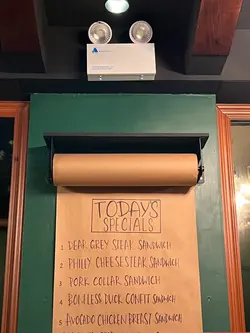 TODAYS
SPECIALS
1 DEAR GREY STEAK SANDWICH
2 PHILLY CHEESESTEAK SANDWICH
3 TORK COLLAR SANDWICH
4 BONELESS DUCK CONFIT SANDWICH
5 AVOCADO CHICKEN BREAST SANDWICH